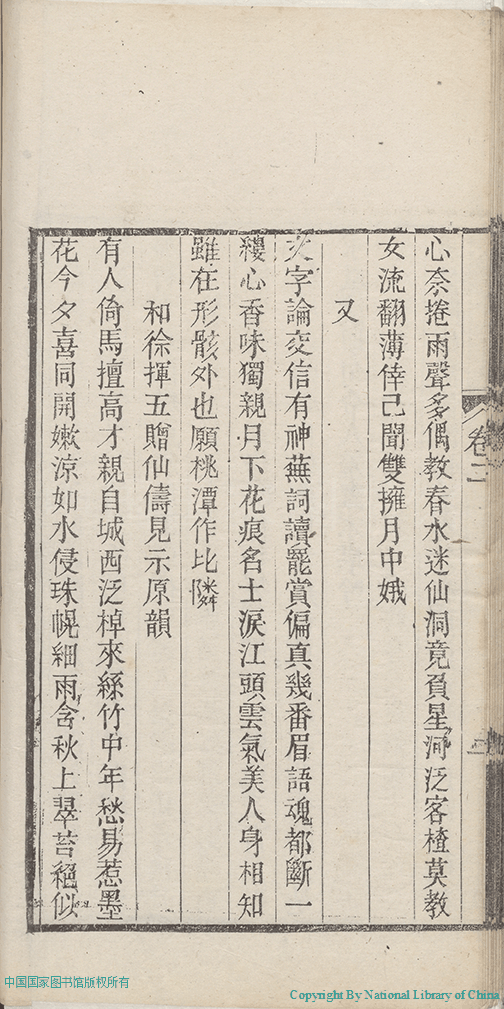 卷二
心奈捲雨聲多偶教春水迷仙洞竟負星河泛客楂莫教
女流翻薄倖已聞雙擁月中娥
又
文字論交信有神蕪詞讀罷賞偏真幾番眉語魂都斷一
縷心香味獨親月下花痕名士淚江頭雲氣美人身相知
雖在形骸外也願桃潭作比隣
和徐揮五贈仙儔見示原韻
有人倚馬擅高才親自城西泛棹來絲竹中年愁易惹墨
花今夕喜同開嫩涼如水侵珠幌細雨含秋上翠苔絕似
中国国家图书馆版权所有
Copyright By National Library of China